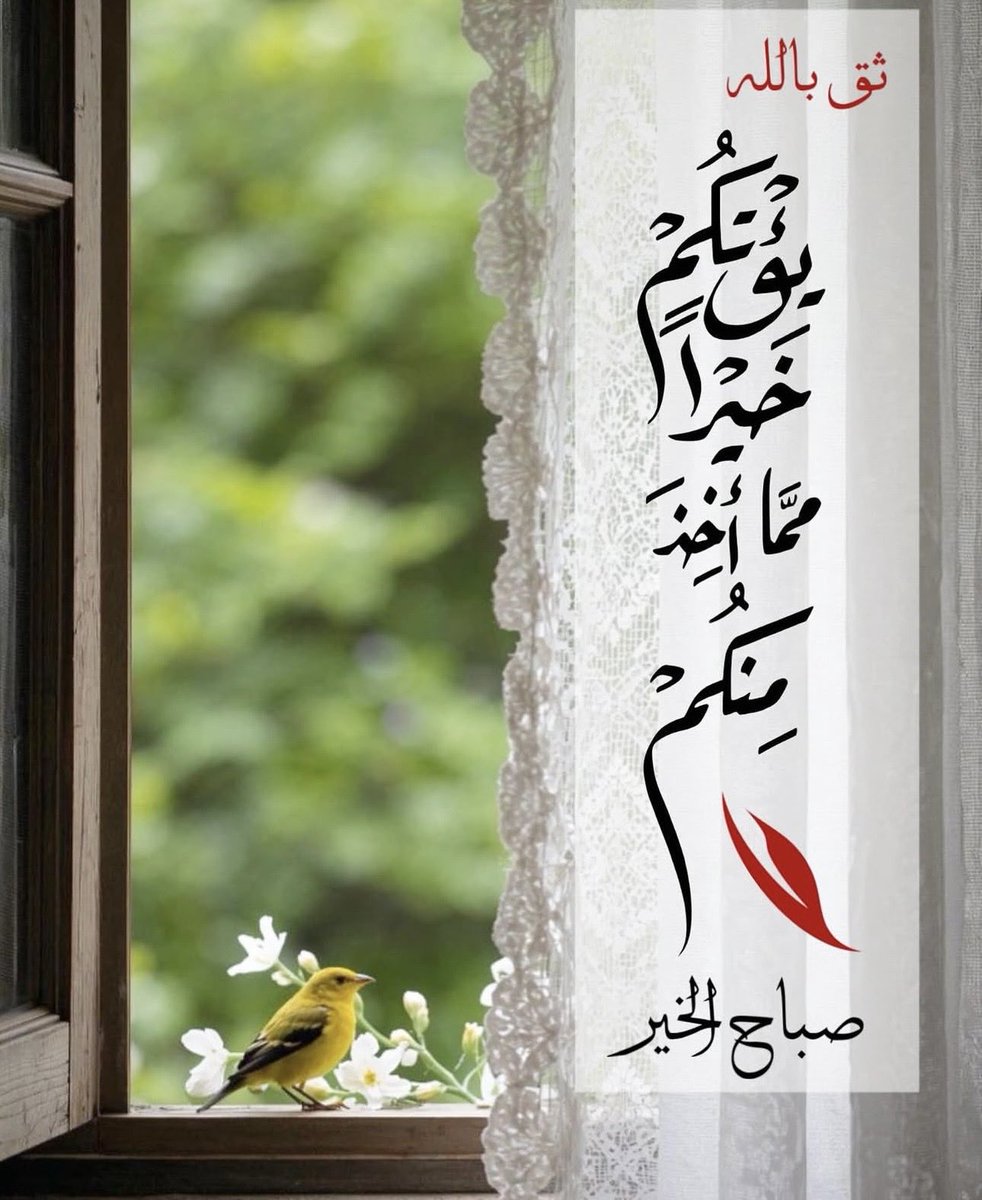 ثق بالله
يُؤْتِكُمْ
خَيْرًا
مِمَّا أُخِذَ
مِنكُمْ
صباح الخير